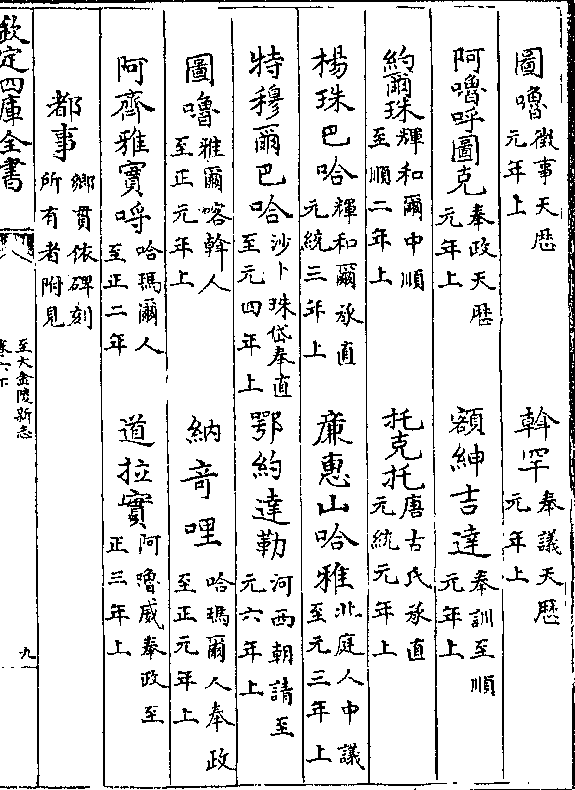 圖嚕徵事天厯元年上　斡罕奉議天厯元年上
阿嚕呼圖克奉政天厯元年上　額紳吉達奉訓至順元年上
約爾珠輝和爾中順至順二年上　托克托唐古氏承直元統元年上
楊珠巴哈輝和爾承直元統三年上　廉惠山哈雅北庭人中議至元三年上
特穆爾巴哈沙卜珠岱奉直至元四年上　鄂約達勒河西朝請至元六年上
圖嚕雅爾喀斡人至正元年上　納竒哩哈瑪爾人奉政至正元年上
阿齊雅實哷哈瑪爾人至正二年　道拉實阿嚕威奉政至正三年上
都事鄉貫依碑刻所有者附見
欽定四庫全書
至大金陵新志
卷六下
九